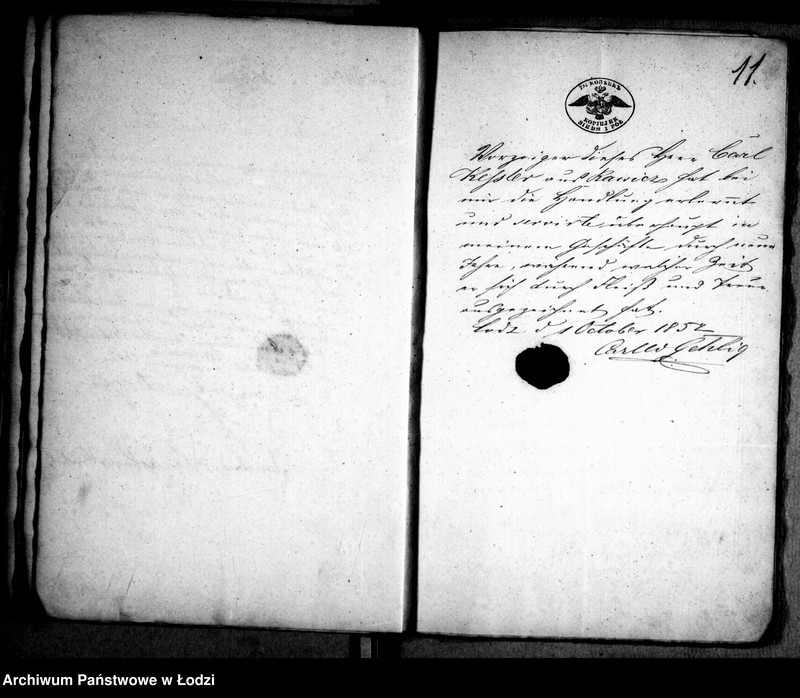 11.
7½ КОПѢЕКЪ
KOPIEJEK
SIEDM I PÓŁ
Vorzeiger dieses Herr Carl
Keßler aus Rawicz hat bei
mir die Handlung erlernt
und servirte überhaupt in
meinem Geschäfte durch neun
Jahre, während welcher Zeit
er sich durch Fleiß und Treue
ausgezeichnet hat.
Lodz d 1 October 1852
Gehlig
Archiwum Państwowe w Łodzi